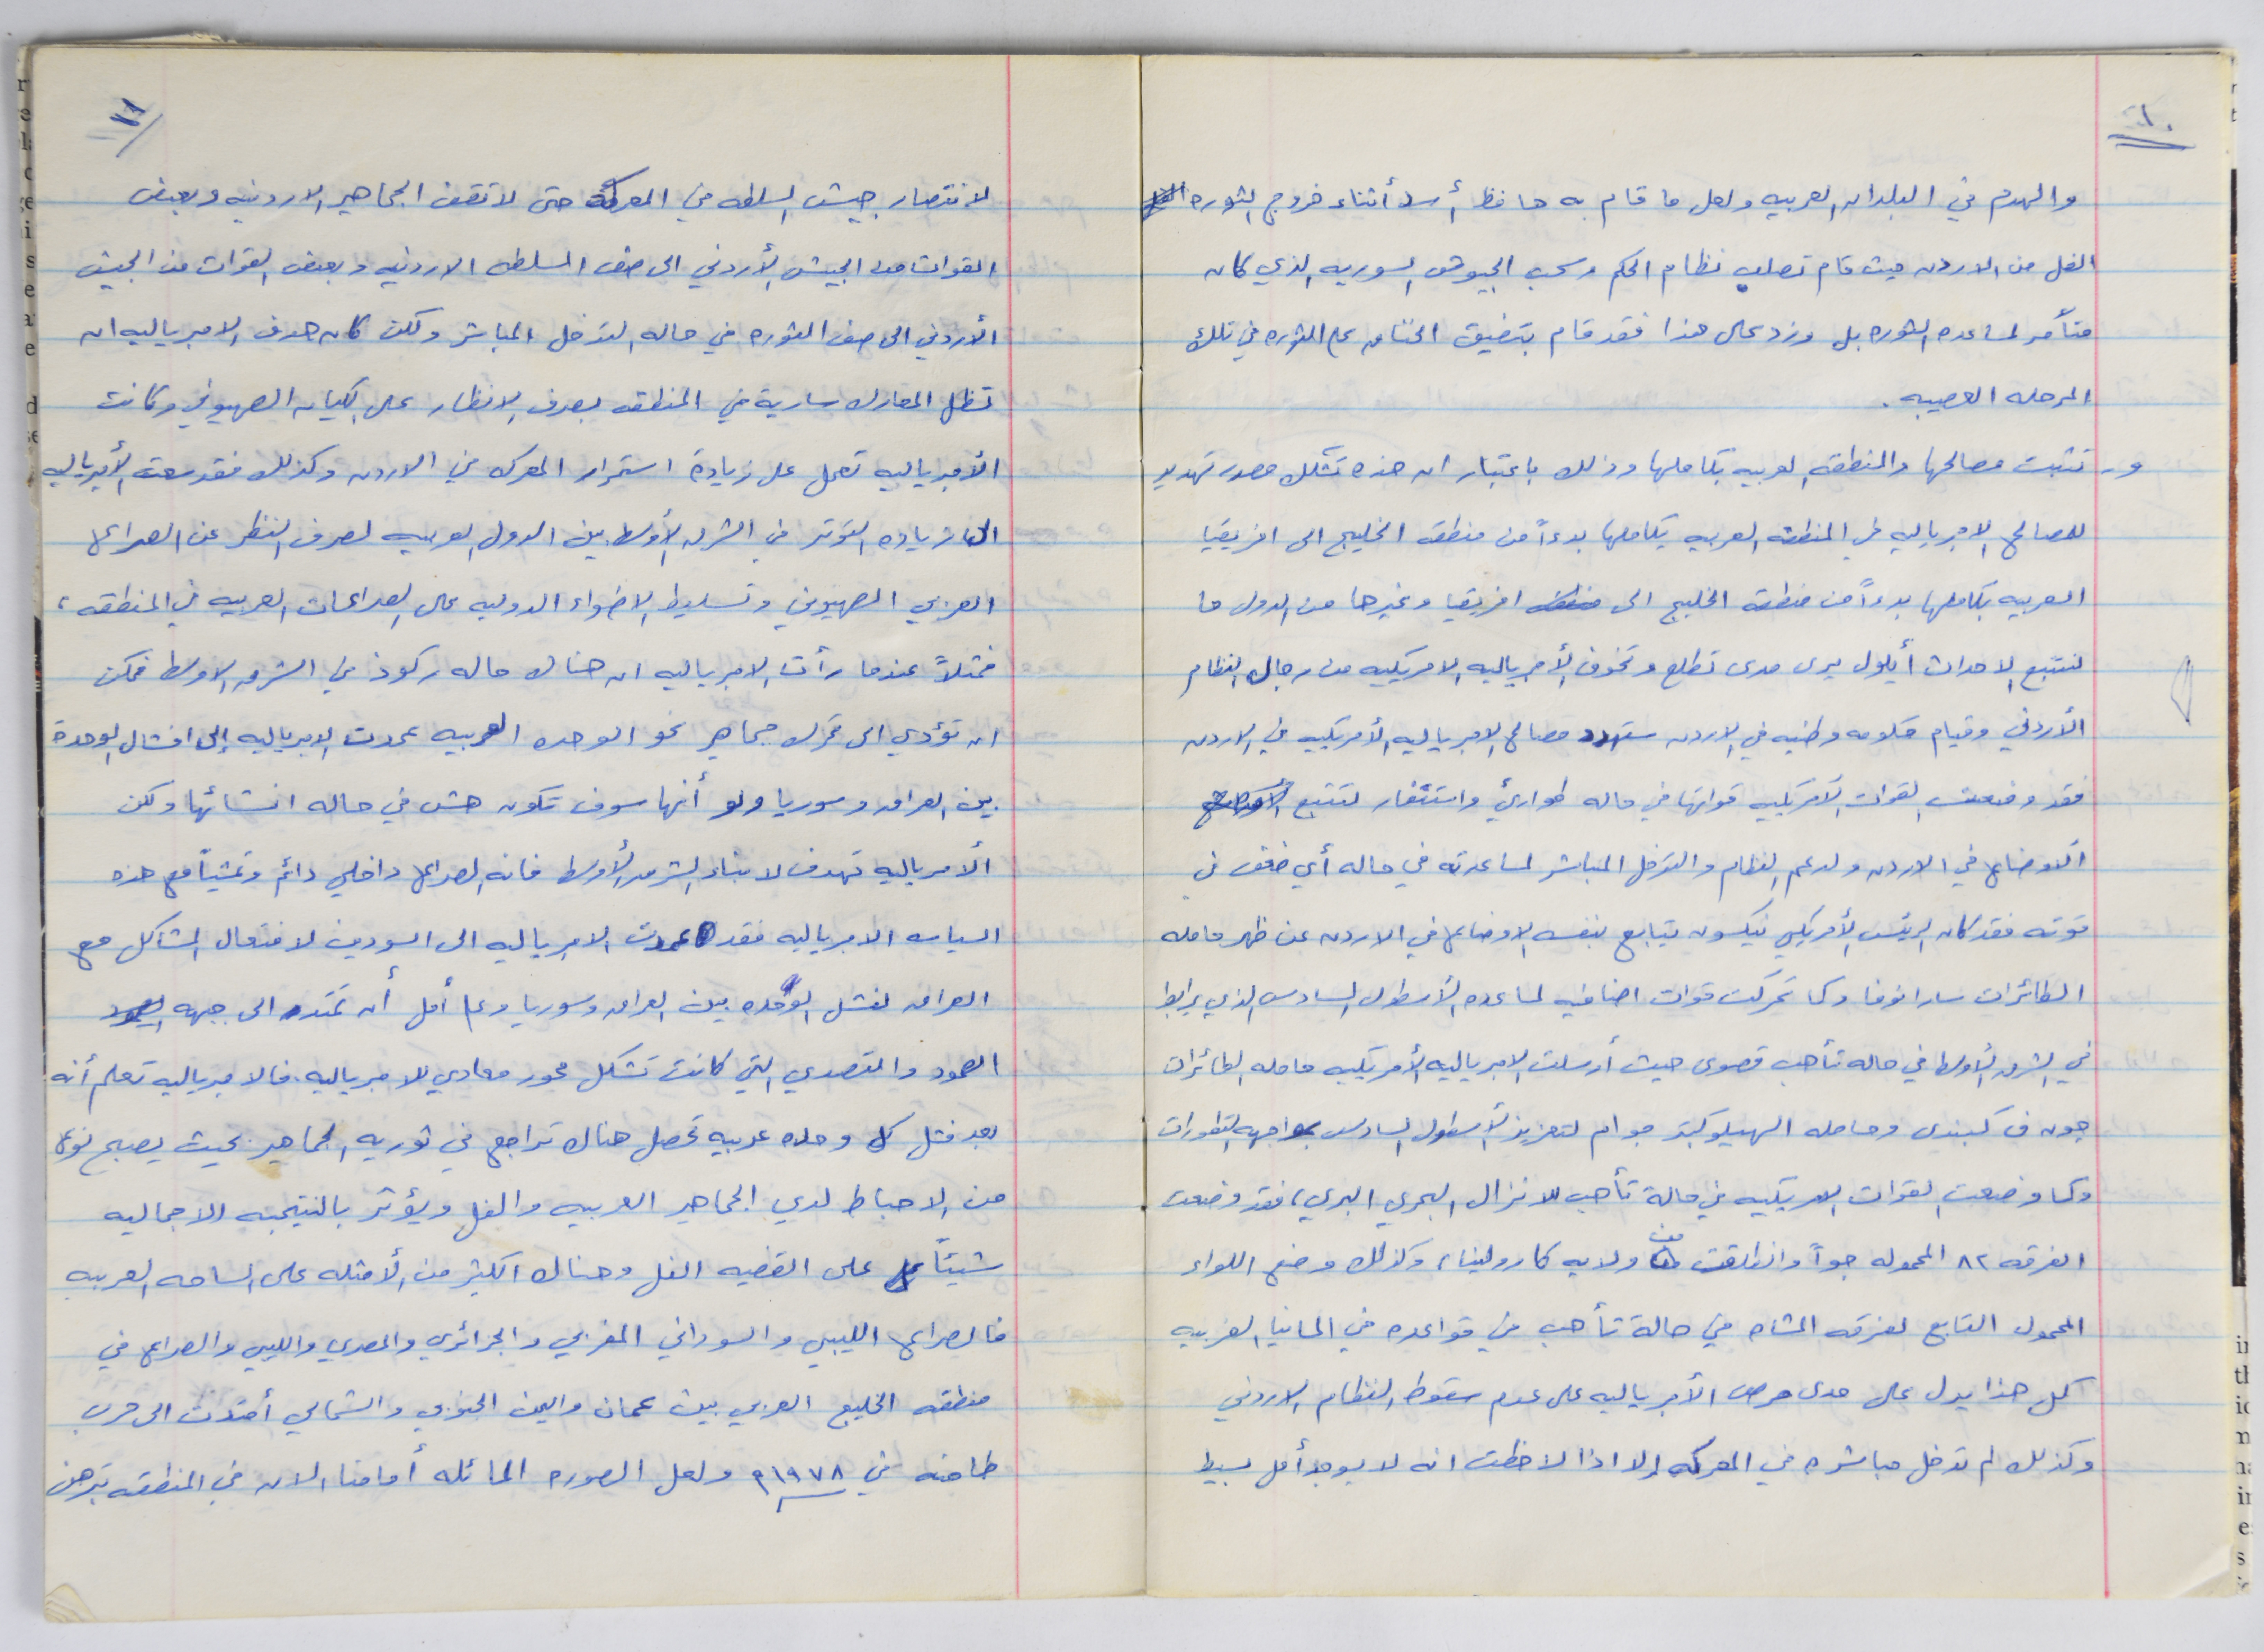 ١٠
والهدم في البلدان العربيه ولعل ما قام به حافظ أسد أثناء خروج الثوره
الفل من الاردن حيث قام تصلب نظام الحكم وسحب الجيوش السوريه الذي كان
متأمر لمساعده الثوره بل وزد على هذا فقد قام بتضيق الخناق على الثوره في تلك
المرحله العصيبه .
و - تثبت مصالحها والمنطقه العربيه بكاملها وذلك باعتبار ان هذه تشكل مصدر تهديد
للمصالح الامبرياليه في المنطقه العربيه بكاملها بدءاً من منطقه الخليج الى افريقيا
العربيه بكاملها بدءاً من منطقة الخليج الى افريقيا وغيرها من الدول ما
لنتبع الاحداث أيلول يرى مدى تطلع وتخوف الأمبرياليه الامريكيه من رجال النظام
الأردني وقيام حكومه وطنيه في الاردن ستهدد مصالح الامبرياليه الأمريكيه في الاردن
فقد وضعت القوات الامريكيه قواتها في حاله طوارئ واستنفار لتتبع
الاوضاع في الاردن ولدعم النظام والتدخل المباشر لمساعدته في حاله أي ضعف في
قوته فقد كان الرئيس الأمريكي نيكسون يتابع بنفسه الاوضاع في الاردن عن ظهر حامله
الطائرات ساراتوفا وكما تحركت قوات اضافيه لمساعده الأسطول السادس الذي يرابط
في الشرق الأوسط في حاله تأهب قصوى حيث أرسلت الامبرياليه الأمريكيه حامله الطائرات
جون ف كبندى وحامله الهيلوكبتر جوام لتعزيز الأسطول السادس بمواجهه التطورات
وكما وضعت القوات الامريكيه في حالة تأهب للانزال البحري البري، فقد وضعت
الفرقه ٨٢ المحموله جواً وانطلقت من ولايه كارولينا، وكذلك وضع اللواء
المحمول التابع لفرقه المشاه في حالة تأهب في قواعده في المانيا الغربيه
كل هذا يدل على مدى حرص الأمبرياليه على عدم سقوط النظام الاردني
وكذلك لم تدخل مباشره في المعركه إلا اذا لاحظت انه لا يوجد أمل بسيط
١١
لانتصار جيش السلطه في المعركة حتى لا تقف الجماهير الاردنيه وبعض
القوات من الجيش الأردني الى صف السلطه الاردنيه وبعض القوات من الجيش
الأردني الى صف الثوره في حاله التدخل المباشر ولكن كان هدف الامبرياليه ان
تظل المعارك سارية في المنطقه بصرف الانظار على الكيان الصهيوني وكانت
الأمبرياليه تعمل على زيادة استمرار المعركه في الاردن وكذلك فقد سعت الأمبرياليه
الى زياده التوتر في الشرق الأوسط بين الدول العربيه لصرف النظر عن الصراع
العربي الصهيوني وتسليط الاضواء الدوليه على الصراعات العربيه في المنطقه،
فمثلاً عندما رأت الامبرياليه ان هناك حاله ركود في الشرق الاوسط فمكن
ان تؤدي الى تحرك جماهير نحو الوحده العربيه عمدت الامبرياليه إلى افشال الوحدة
بين العراق وسوريا ولو أنها سوف تكون هش في حاله انشائها ولكن
الأمرياليه تهدف لابناء الشرق الأوسط فانه لصراع داخلي دائم وتمشياً مع هذه
السياسه الامبرياليه فقد عمدت الامبرياليه الى السودين لافتعال المشاكل مع
العراق لفشل الوحده بين العراق وسوريا وعلى أمل أن تمتد الى جبهه
الصمود والتصدي التي كانت تشكل محور معادي للامبرياليه. فالامبرياليه تعلم أنه
بعد فشل كل وحده عربيه تحصل هناك تراجع في ثوريه الجماهير بحيث يصبح نوع
من الاحباط لدي الجماهير العربيه والفل ويؤثر بالنتيجه الاجماليه
شيئاً على القضيه الفل وهناك الكثير من الأمثله على الساحه العربيه
فالصراع الليبي والسوداني المغربي والجزائري والمصري والليبي والصراع في
منطقه الخليج العربي بين عمان واليمن الجنوبي والشمالي أمتدت الى حرب
طاحنه في ١٩٧٨م ولعل الصوره الماثله أمامنا الان في المنطقه تبرهن